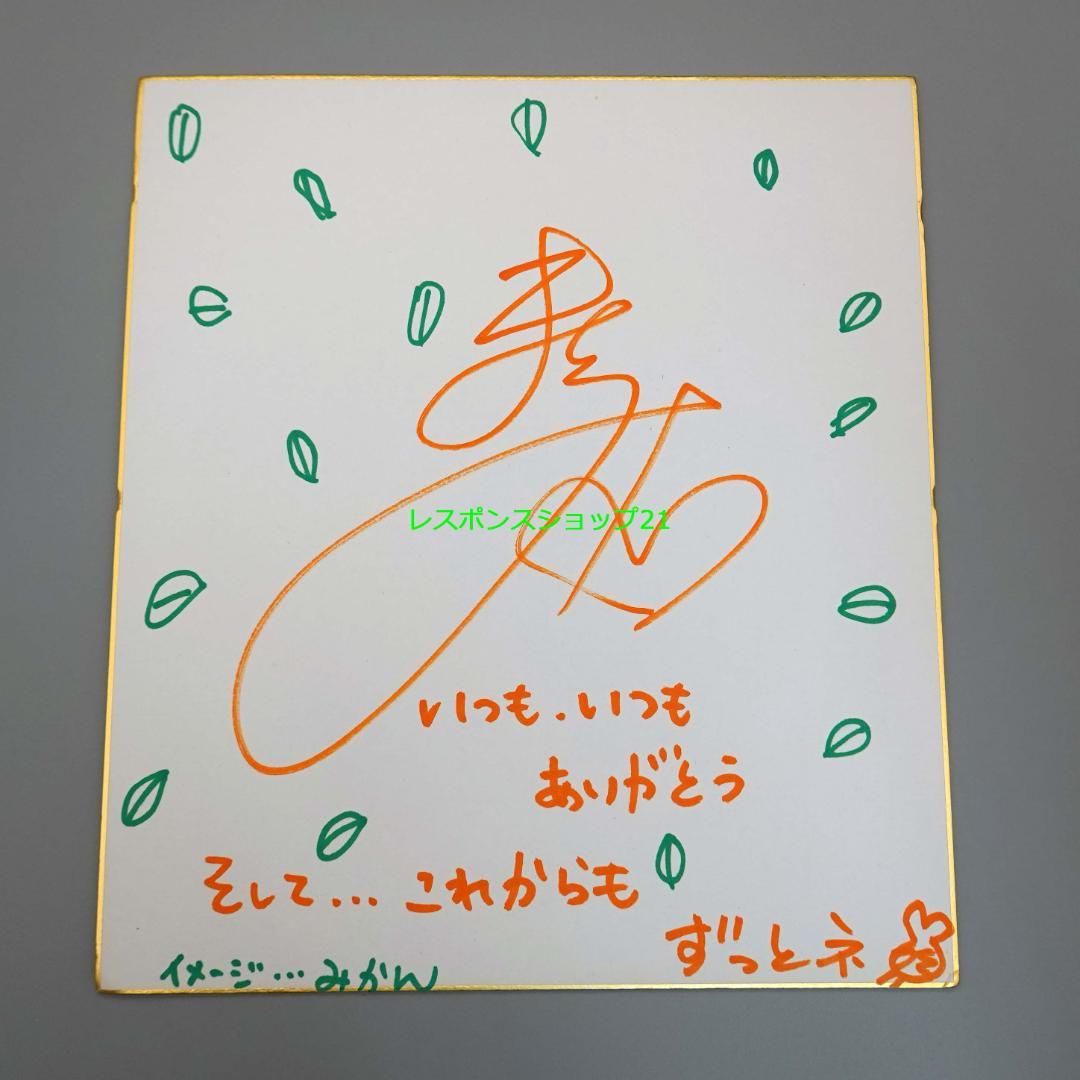 レスポンスショップ21
いつも.いつも
ありがとう
そして...これからも
ずっとネ
イメージ...みかん